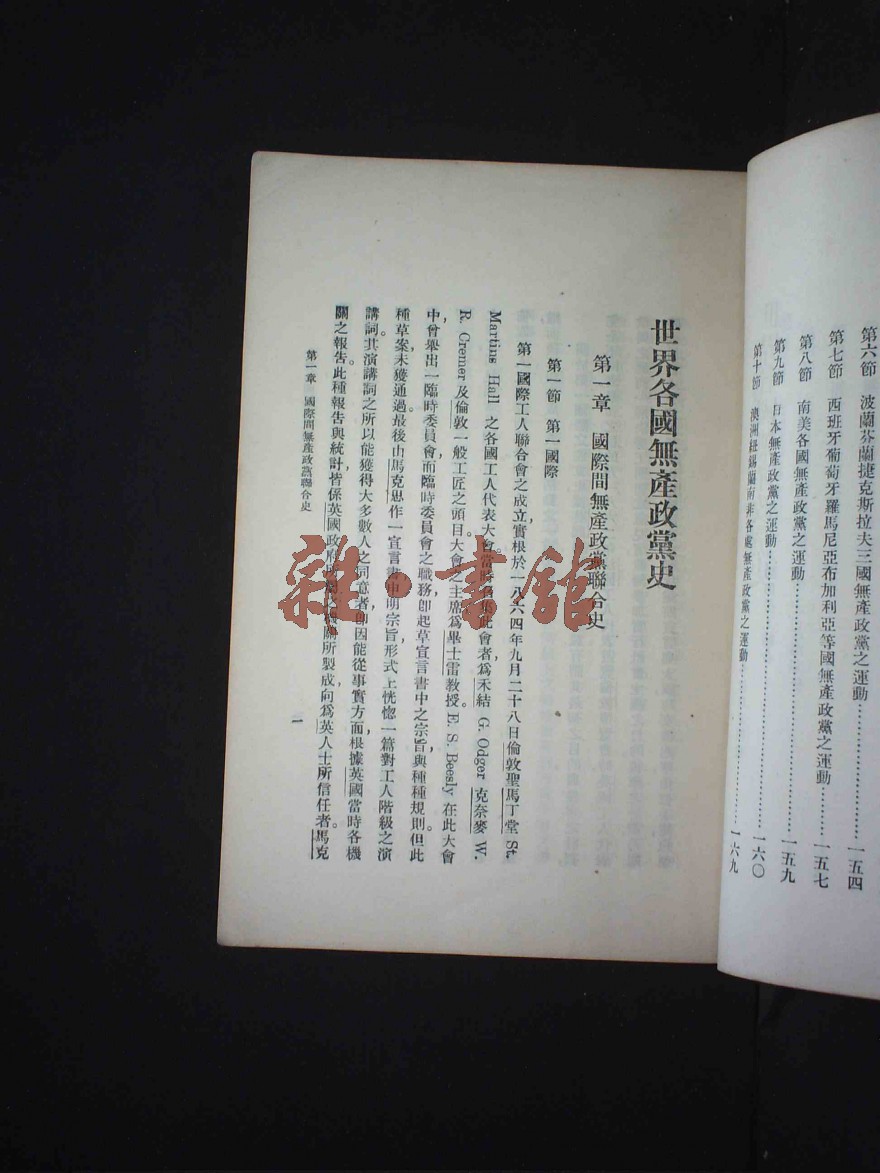 第六節　波蘭芬蘭捷克斯拉夫三國無產政黨之運動…………一五四
第七節　西班牙葡萄牙羅馬尼亞布加利亞等國無產政黨之運動………一五七
第八節　南美各國無產政黨之運動…………一五九
第九節　日本無產政黨之運動…………一六〇
第十節　澳洲紐錫蘭南非各處無產政黨之運動…………一六九
世界各國無產政黨史
第一章　國際間無產政黨聯合史
第一節　第一國際
第一國際工人聯合會之成立，實根於一八六四年九月二十八日倫敦聖馬丁堂 St.
Martins Hall 之各國工人代表大會。當時召集此會者爲禾結 G. Odger 克奈麥 W.
R. Cremer 及倫敦一般工匠之頭目。大會之主席爲畢士雷教授。E. S. Beesly 在此大會
中，曾舉出一臨時委員會，而臨時委員會之職務，卽起草宣言書中之宗旨與種種規則。但此
種草案未獲通過。最後由馬克思作一宣言書，申明宗旨，形式上恍惚一篇對工人階級之演
講詞。其演講詞之所以能獲得大多數人之同意者，卽因能從事實方面，根據英國當時各機
關之報告。此種報告與統計，皆係英國政府所製成，向爲英人士所信任者。馬克
第一章　國際間無產政黨聯合史
一
雜·書館